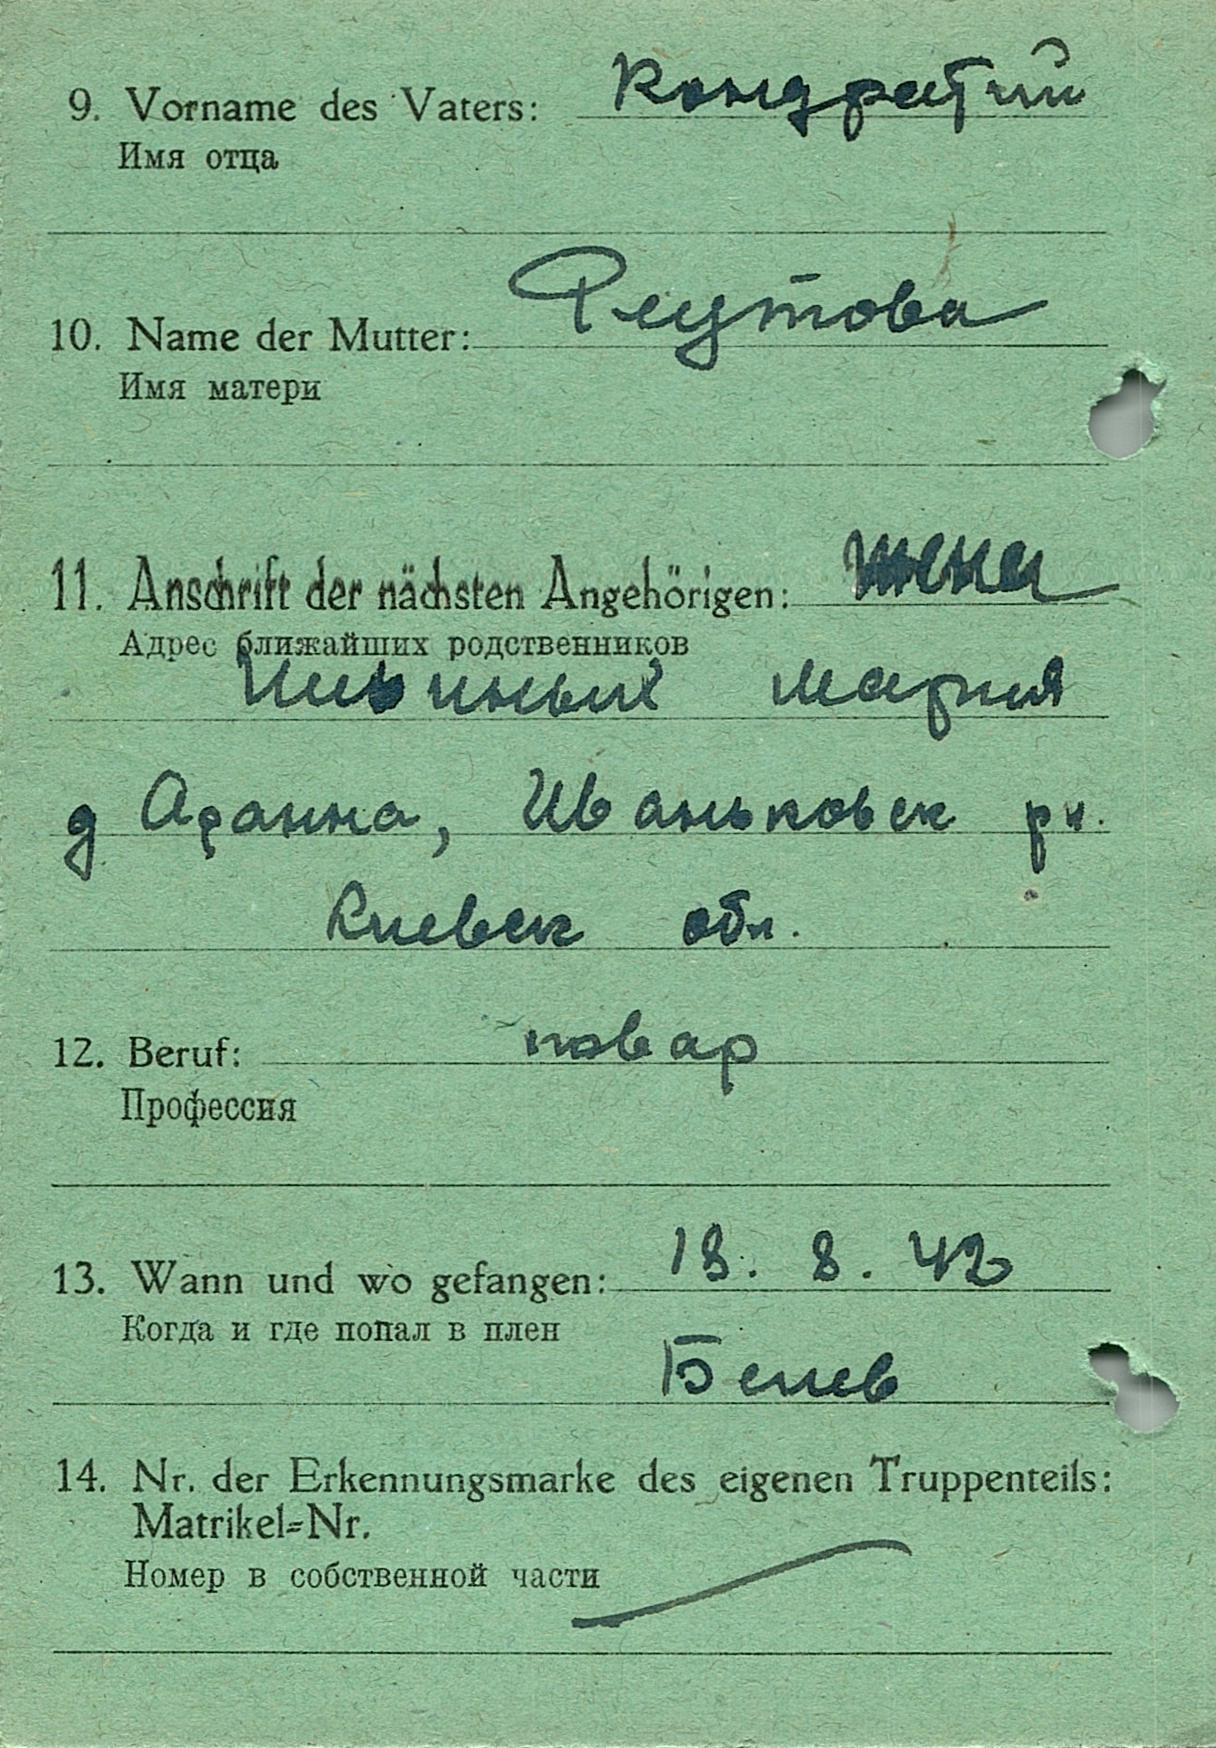 9. Vorname des Vaters: Кондратий
Имя отца
10. Name der Mutter: Реутова
Имя матери
11. Anschrift der nächsten Angehörigen: жена
Адрес ближайших родственников
Мария
д Аранна, Иваньковск рн.
Киевск обл.
12. Beruf: повар
Профессия
13. Wann und wo gefangen: 18. 8. 42
Когда и где попал в плен
Белев
14. Nr. der Erkennungsmarke des eigenen Truppenteils:
Matrikel=Nr.
Номер в собственной части